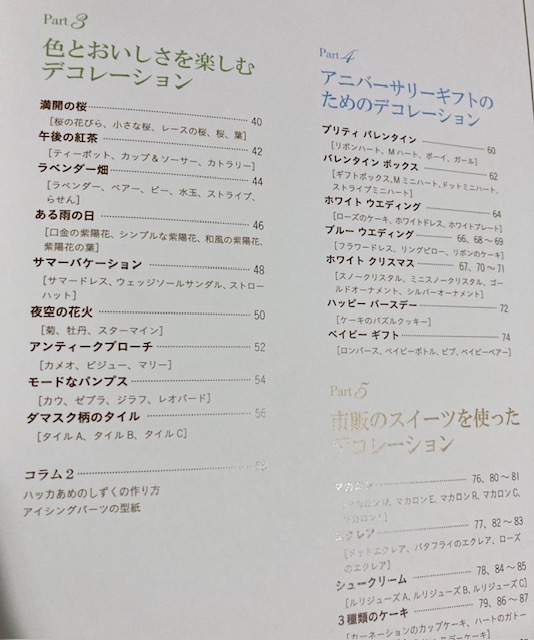 Part 3
色とおいしさを楽しむ
デコレーション
満開の桜 40
[桜の花びら、小さな桜、レースの桜、桜、葉]
午後の紅茶 42
[ティーポット、カップ&ソーサー、カトラリー]
ラベンダー畑 44
[ラベンダー、ベアー、ビー、水玉、ストライプ、
らせん]
ある雨の日 46
[口金の紫陽花、シンプルな紫陽花、和風の紫陽花、
紫陽花の葉]
サマーバケーション 48
[サマードレス、ウェッジソールサンダル、ストロー
ハット]
夜空の花火 50
[菊、牡丹、スターマイン]
アンティークブローチ 52
[カメオ、ビジュー、マリー]
モードなパンプス 54
[カウ、ゼブラ、ジラフ、レオパード]
ダマスク柄のタイル 56
[タイルA、タイルB、タイルC]
コラム2
ハッカあめのしずくの作り方
アイシングパーツの型紙
Part 4
アニバーサリーギフトの
ためのデコレーション
プリティ バレンタイン 60
[リボンハート、Mハート、ボーイ、ガール]
バレンタイン ボックス 62
[ギフトボックス、Mミニハート、ドットミニハート、
ストライプミニハート]
ホワイト ウエディング 64
[ローズのケーキ、ホワイトドレス、ホワイトプレート]
ブルー ウエディング 66、68〜69
[フラワードレス、リングピロー、リボンのケーキ]
ホワイト クリスマス 67、70〜71
[スノークリスタル、ミニスノークリスタル、ゴー
ルドオーナメント、シルバーオーナメント]
ハッピー バースデー 72
[ケーキのパズルクッキー]
ベイビー ギフト 74
[ロンパース、ベイビーボトル、ビブ、ベイビーベアー]
Part 5
市販のスイーツを使った
デコレーション
マカロン 76、80〜81
マカロンE、マカロンR、マカロンC、
エクレア 77、82〜83
[ドットエクレア、バタフライのエクレア、ローズ
のエクレア]
シュークリーム 78、84〜85
[ルリジューズA、ルリジューズB、ルリジューズC]
3種類のケーキ 79、86〜87
[カーネーションのカップケーキ、ハートのガトー